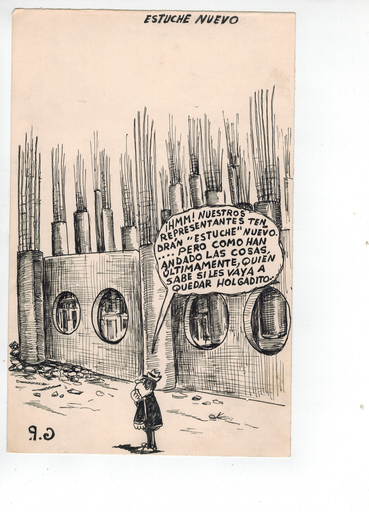 ESTUCHE NUEVO
¡IMM! NUESTROS
REPRESENTANTES TEN
DRÁN "ESTUCHE" NUEVO.
.... PERO COMO HAN
ANDADO LAS COSAS,
ÚLTIMAMENTE, QUIÉN
SABE SI LES VAYA A
QUEDAR HOLGADITO..
G.P.